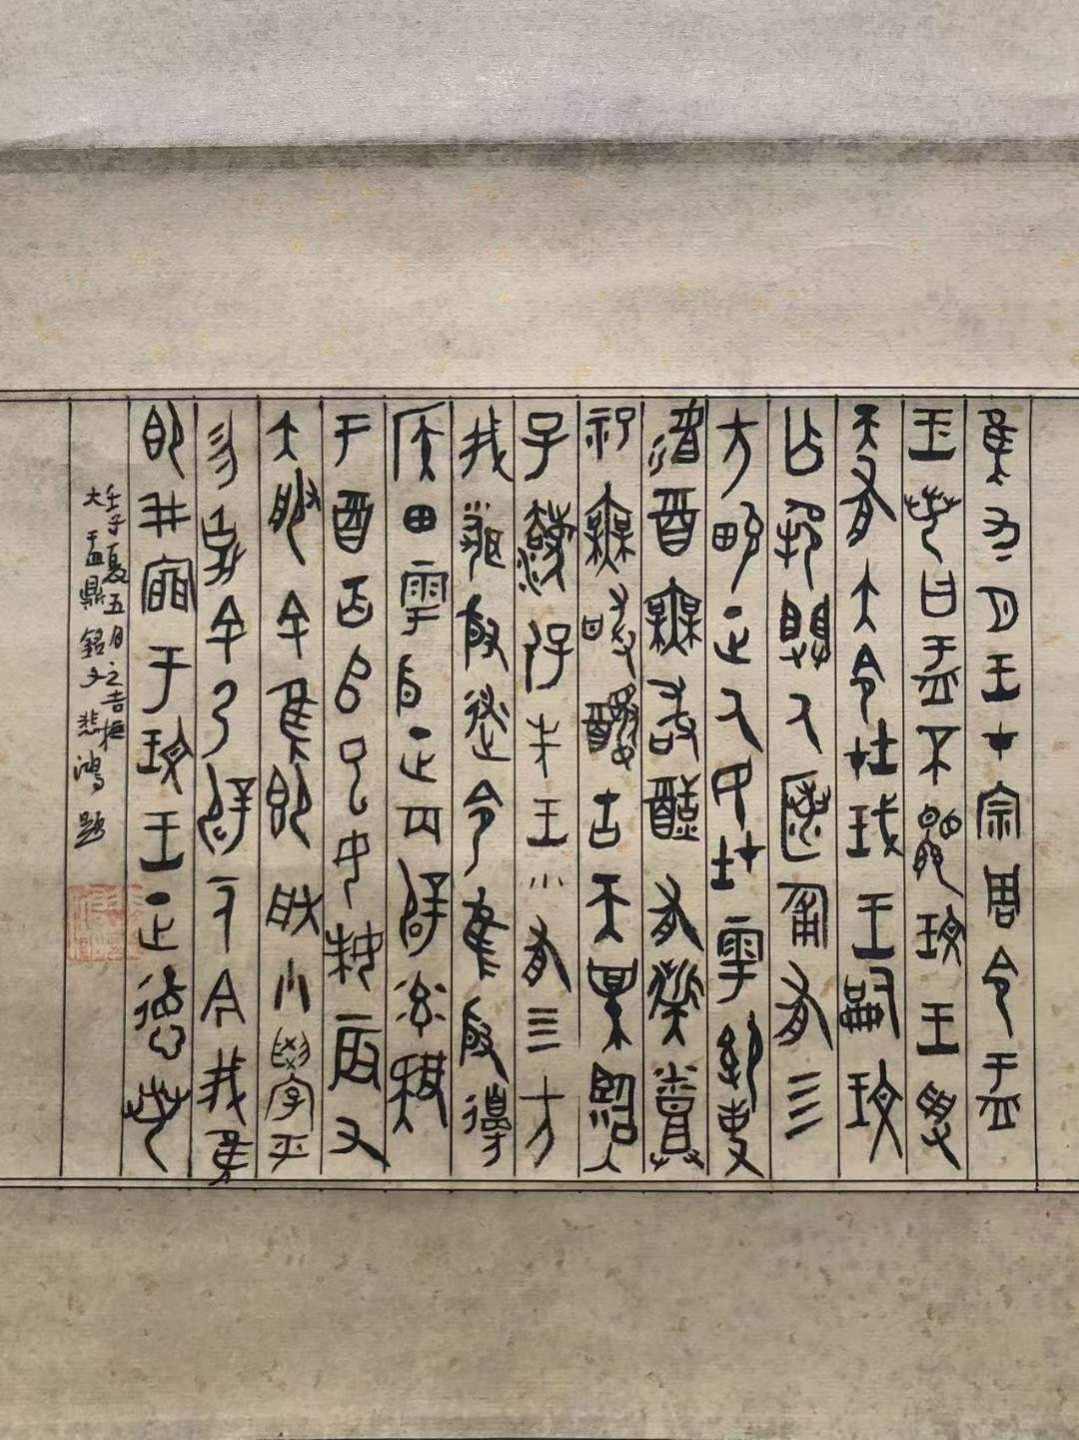 隹九月王才宗周令盂
王若曰盂不顯玟王受
天有大令在珷王嗣玟
乍邦闢氒匿匍有四
方畯正氒民在雩御事
酉無敢酖有祡烝
祀無敢古天異臨
子法保先王有四方
我聞殷述令隹殷邊
侯田雩殷正百辟率肄
于酉古喪師巳妹辰又
大服余隹即朕小學女
勿克余乃辟一人今我隹
即井廩于玟王正德若
壬子夏五月之吉
大盂鼎銘文 悲鴻題